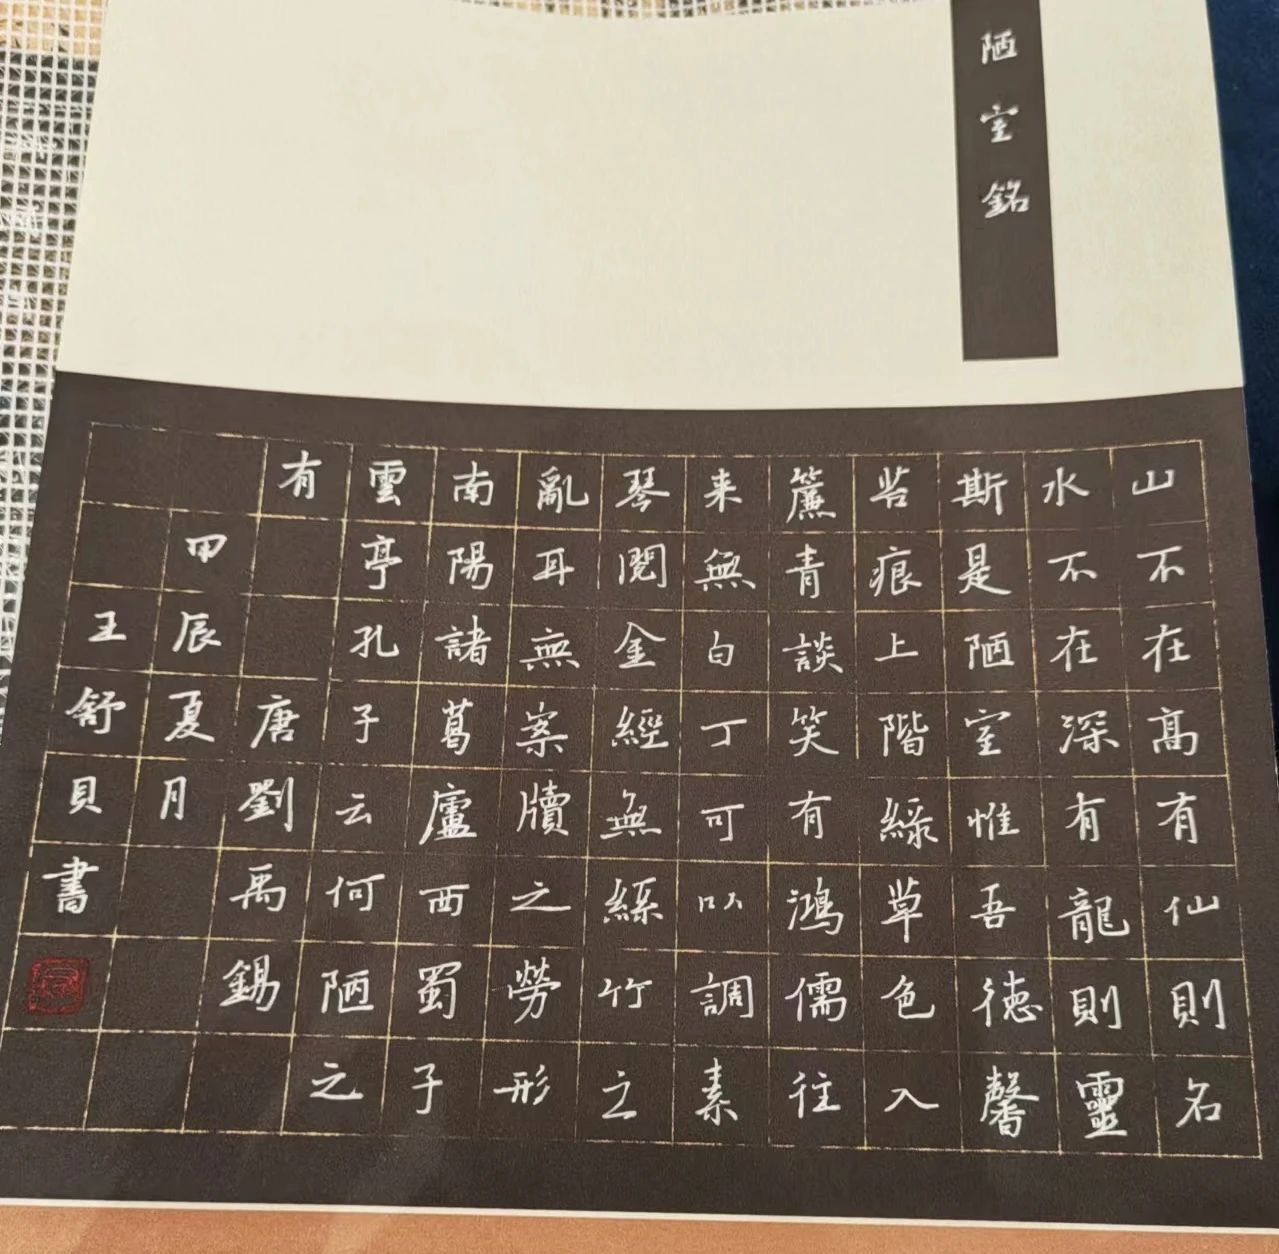 陋室銘
山不在高有仙則名
水不在深有龍則靈
斯是陋室惟吾德馨
苔痕上階綠草色入
簾青談笑有鴻儒往
来無白丁可以調素
琴閱金經無絲竹之
亂耳無案牘之勞形
南陽諸葛廬西蜀子
雲亭孔子云何陋之
有 唐劉禹錫
甲辰夏月
王舒貝書